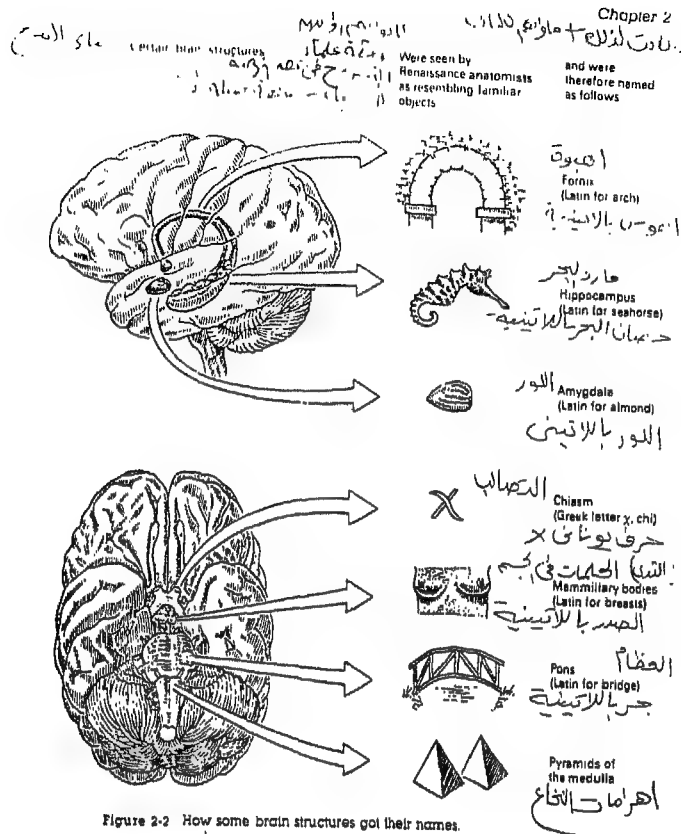 Chapter 2
Certain brain structures
Were seen by
Renaissance anatomists
as resembling familiar
objects
and were
therefore named
as follows
Fornix
(Latin for arch)
Hippocampus
(Latin for seahorse)
حصان البحر باللاتينية
اللوز
Amygdala
(Latin for almond)
اللوز باللاتيني
التصالب
Chiasm
(Greek letter χ, chi)
حرف يوناني x
الحلمات في الجسم
Mammillary bodies
(Latin for breasts)
الصدر باللاتينية
Pons
(Latin for bridge)
جسر باللاتينية
Pyramids of
the medulla
اهرامات النخاع
Figure 2-2 How some brain structures got their names.